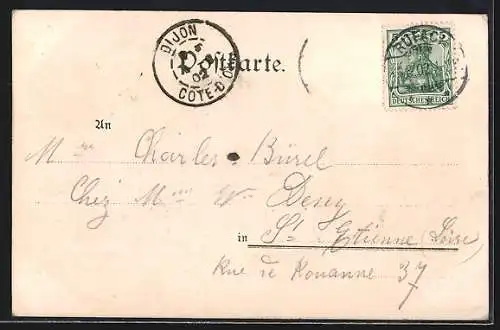 DIJON
5
02
COTE-D'OR
Postkarte.
RUFACH
DEUTSCHES REICH
An
Mre Charles Bürel
Chez Mme Vve Deny
in St Etienne (Loire)
Rue de Rouanne 37